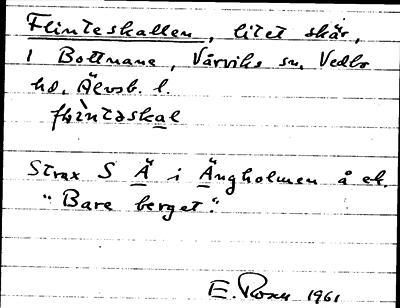 Flinteskallen, litet skär,
i Bottnane, Vårviks sn, Vedbo
hd, Älvsb. l.
flìntəskal
Strax S Ä i Ängholmen å ek.
"Bare berget".
E. Rosen 1961